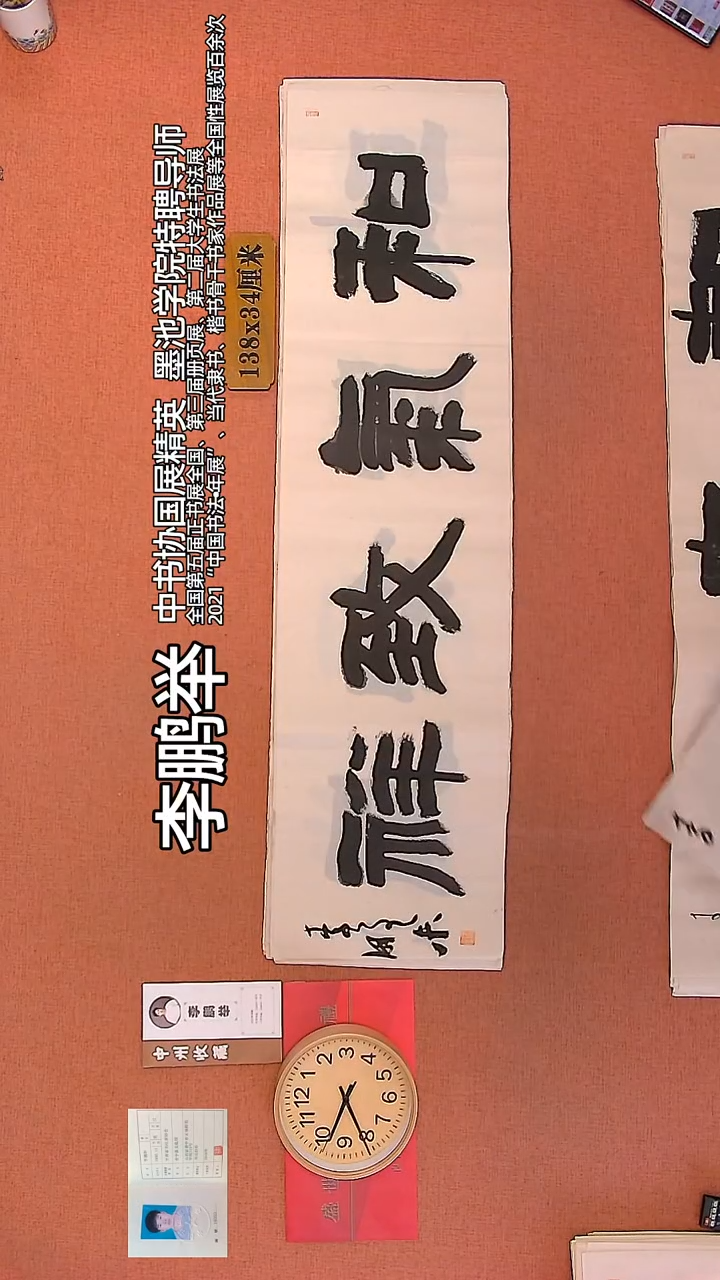 李鹏举
中书协国展精英 墨池学院特聘导师
全国第五届正书展全国、第三届册页展、第二届大学生书法展
2021“中国书法•年展”、当代隶书、楷书骨干书家作品展等全国性展览百余次
138x34厘米
和氣致祥
李鹏举
中州收藏
盛世
禮
12
1
2
3
4
5
6
7
8
9
10
11